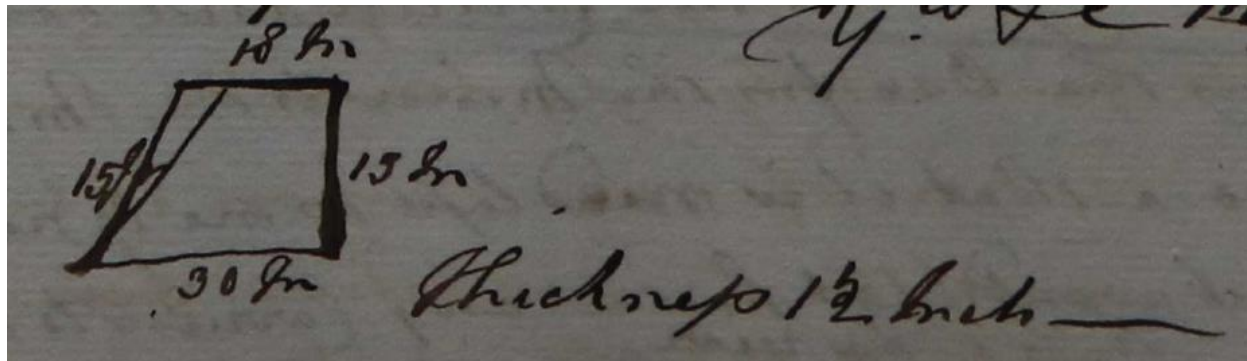 18 In
15 In
13 In
30 In
thickness 1½ Inch